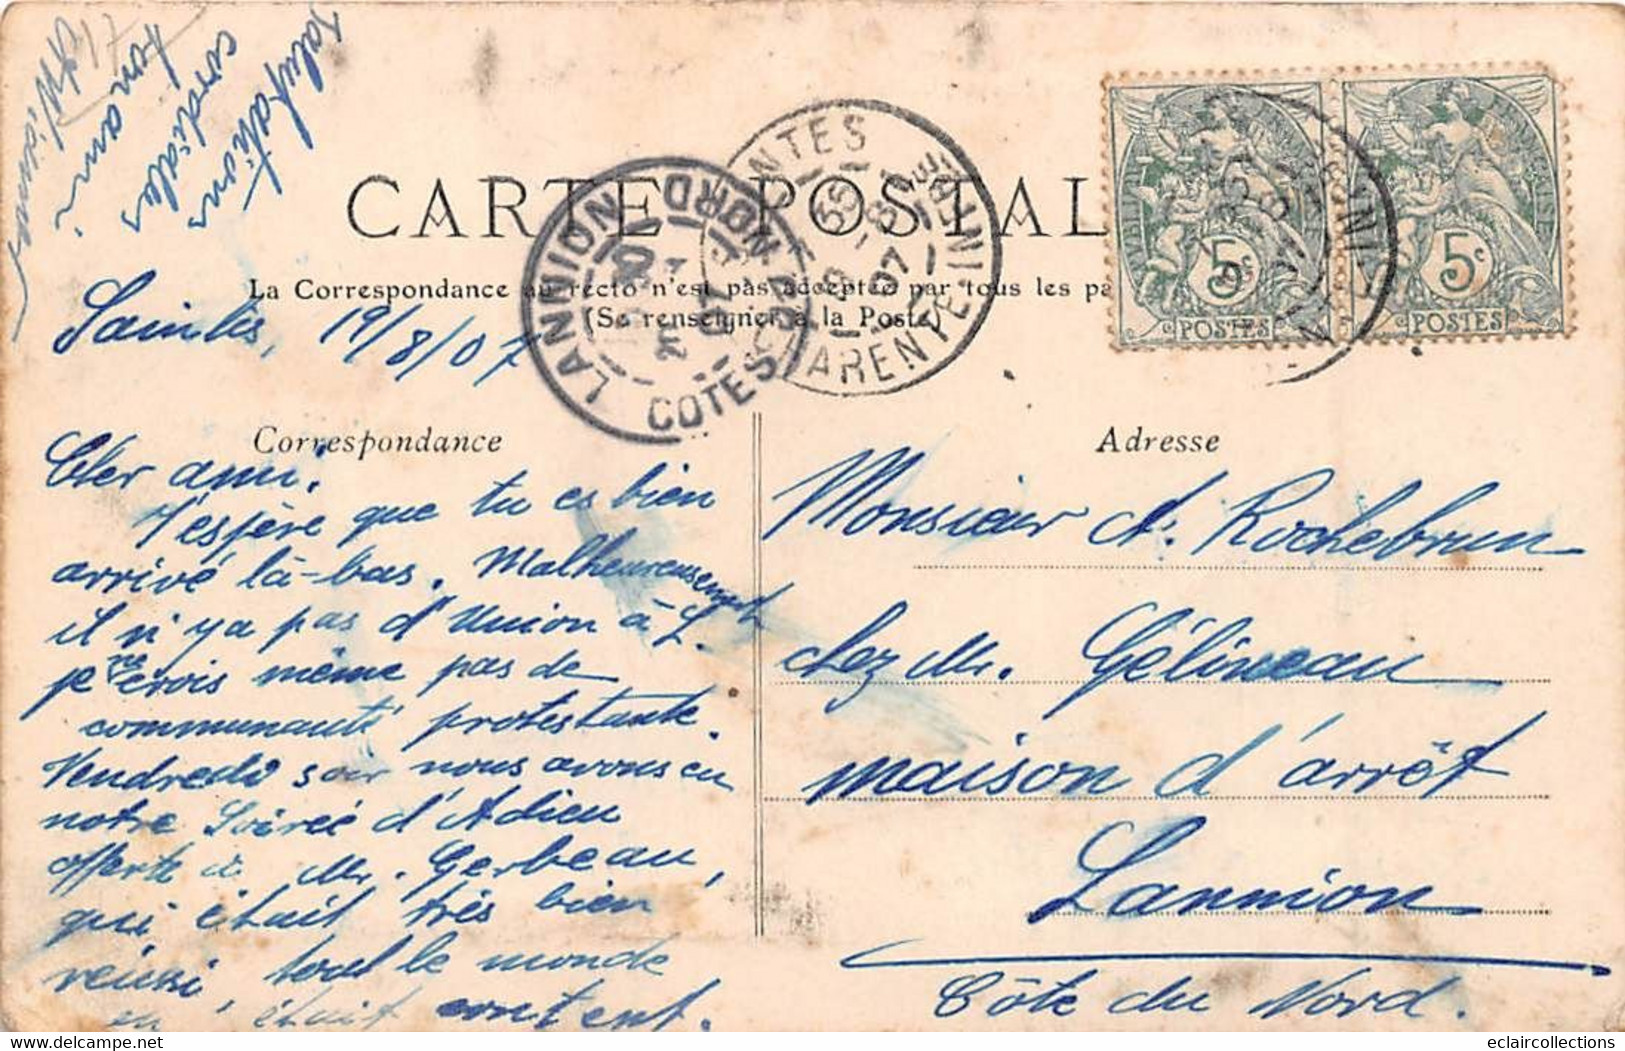 CARTE POSTALE
La Correspondance au recto n'est pas acceptée par tous les pa
(Se renseigner à la Poste
Saintes, 19/8/07
Correspondance
Cher ami.
J'espère que tu es bien
arrivé là-bas. Malheureusement
il n'y a pas d'Union à L.
je ne crois même pas de
communauté protestante.
Vendredi soir nous avons eu
notre Soirée d'Adieu
offerte à Mr. Gerbeau,
qui était très bien
réussi, tout le monde
était content.
Salutations
cordiales
ton ami
Adresse
Monsieur A. Rochebrun
chez Mr. Gélineau
maison d'arrêt
Lannion
Côte du Nord.
LANNION
COTES DU NORD
20
07
NTES
CHARENTE INFRE
19 -8
07
5c
POSTES
5c
POSTES
eclaircollections.com